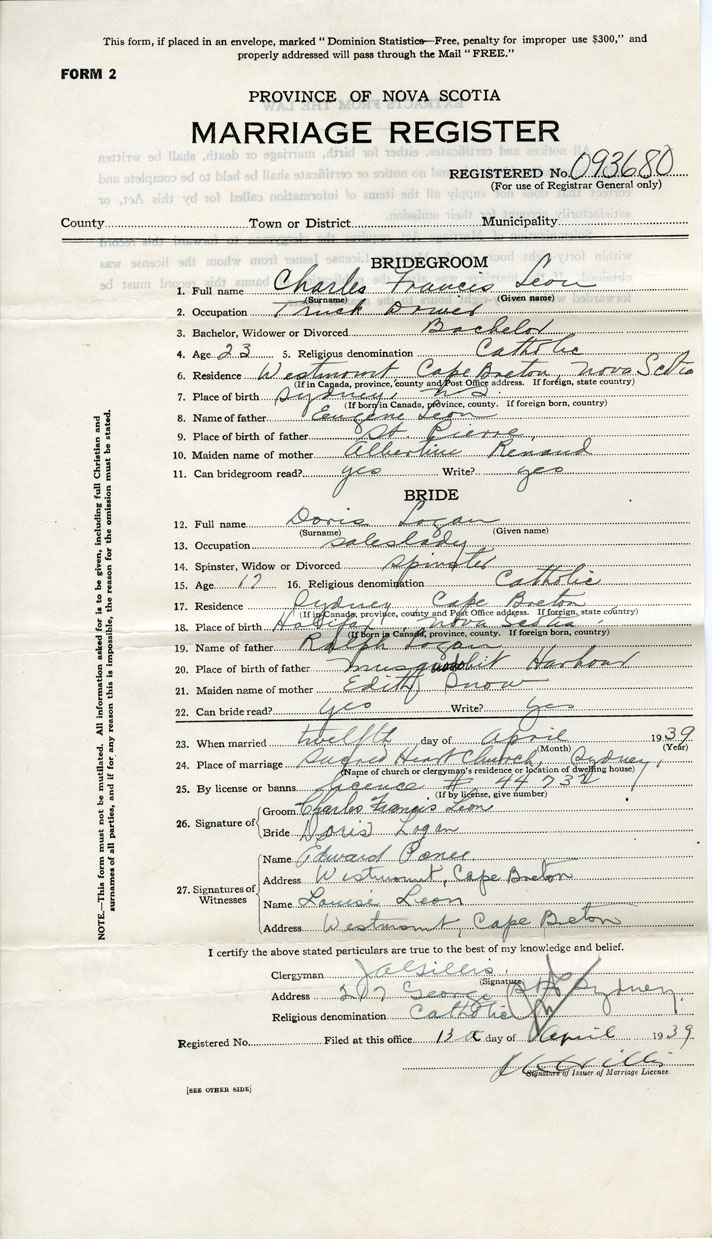 This form, if placed in an envelope, marked "Dominion Statistics—Free, penalty for improper use $300," and
properly addressed will pass through the Mail "FREE."
FORM 2
PROVINCE OF NOVA SCOTIA
MARRIAGE REGISTER
REGISTERED No. 093680
(For use of Registrar General only)
County Town or District Municipality
BRIDEGROOM
1. Full name Charles Francis Leon
(Surname) (Given name)
2. Occupation Truck
3. Bachelor, Widower or Divorced Bachelor
4. Age 23 5. Religious denomination Catholic
6. Residence Westmount Cape Breton, Nova Scotia
(If in Canada, province, county and Post Office address. If foreign, state country)
7. Place of birth Sydney, N S
(If born in Canada, province, county. If foreign born, country)
8. Name of father Eugene Leon
9. Place of birth of father St. Pierre,
10. Maiden name of mother Albertine Renaud
11. Can bridegroom read? yes Write? yes
BRIDE
12. Full name Doris Logan
(Surname) (Given name)
13. Occupation saleslady
14. Spinster, Widow or Divorced spinster
15. Age 17 16. Religious denomination Catholic
17. Residence Sydney Cape Breton
(If in Canada, province, county and Post Office address. If foreign, state country)
18. Place of birth Halifax, Nova Scotia.
(If born in Canada, province, county. If foreign born, country)
19. Name of father Ralph Logan
20. Place of birth of father Musquodobit Harbour
21. Maiden name of mother Edith Snow
22. Can bride read? yes Write? yes
23. When married twelfth day of April 1939
(Month) (Year)
24. Place of marriage Sacred Heart Church, Sydney,
(Name of church or clergyman's residence or location of dwelling house)
25. By license or banns licence # 44732
(If by license, give number)
26. Signature of
Groom Charles Francis Leon
Bride Doris Logan
27. Signatures of Witnesses
Name Edward
Address Westmount, Cape Breton
Name Louise Leon
Address Westmount, Cape Breton
I certify the above stated particulars are true to the best of my knowledge and belief.
Clergyman
(Signature)
Address 207 George St Sydney.
Religious denomination Catholic
Registered No. Filed at this office 13 day of April 1939
Signature of Issuer of Marriage License.
[SEE OTHER SIDE]
NOTE.—This form must not be mutilated. All information asked for is to be given, including full Christian and
surnames of all parties, and if for any reason this is impossible, the reason for the omission must be stated.